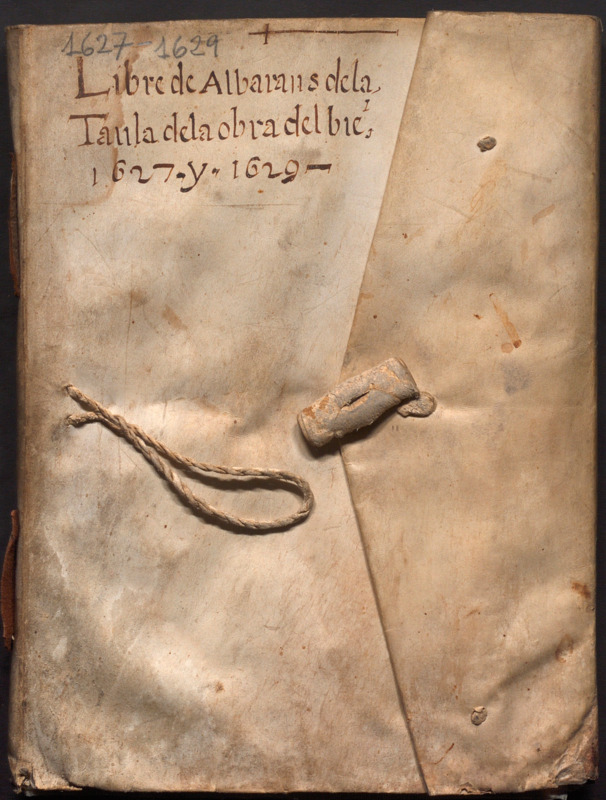 1627-1629
Libre de Albarans dela
Taula dela obra del bie,
1627-y-1629-